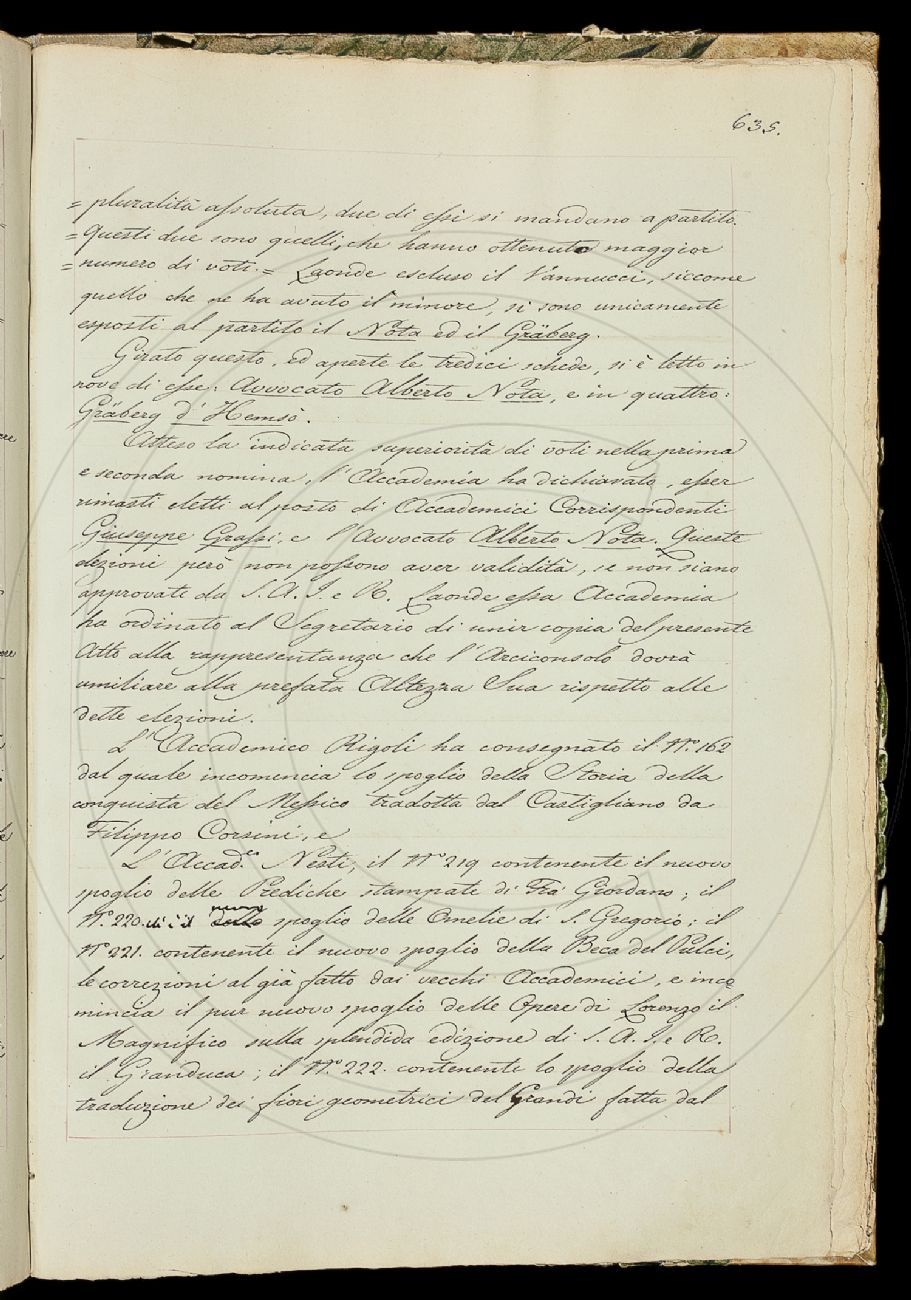 635.
= pluralità assoluta, due di essi si mandano a partito.
= Questi due sono quelli, che hanno ottenuto maggior
= numero di voti. = Laonde escluso il Vannucci, siccome
quello che ne ha avuto il minore, si sono unicamente
esposti al partito il Nota ed il Gräberg.
Girato questo, ed aperte le tredici schede, si è letto in
nove di esse: Avvocato Alberto Nota, e in quattro:
Gräberg d'Hemsò.
Atteso la indicata superiorità di voti nella prima
e seconda nomina, l'Accademia ha dichiarato, esser
rimasti eletti al posto di Accademici Corrispondenti
Giuseppe Grassi, e l'Avvocato Alberto Nota. Queste
elezioni però non possono aver validità, se non siano
approvate da S. A. I. e R. Laonde essa Accademia
ha ordinato al Segretario di unir copia del presente
Atto alla rappresentanza che l'Arciconsolo dovrà
umiliare alla prefata Altezza Sua rispetto alle
dette elezioni.
L'Accademico Rigoli ha consegnato il N.º 162
dal quale incomincia lo spoglio della Storia della
conquista del Messico tradotta dal Castigliano da
Filippo Corsini, e
L'Accad.co Nesti, il N.º 219 contenente il nuovo
spoglio delle Prediche stampate di Fra Giordano; il
N.º 220. di il nuovo spoglio delle Omelie di S. Gregorio; il
N.º 221. contenente il nuovo spoglio della Beca del Pulci,
le correzioni al già fatto dai vecchi Accademici, e inco
mincia il pur nuovo spoglio delle Opere di Lorenzo il
Magnifico sulla splendida edizione di S. A. I. e R.
il Granduca; il N.º 222. contenente lo spoglio della
traduzione dei fiori geometrici del Grandi fatta dal